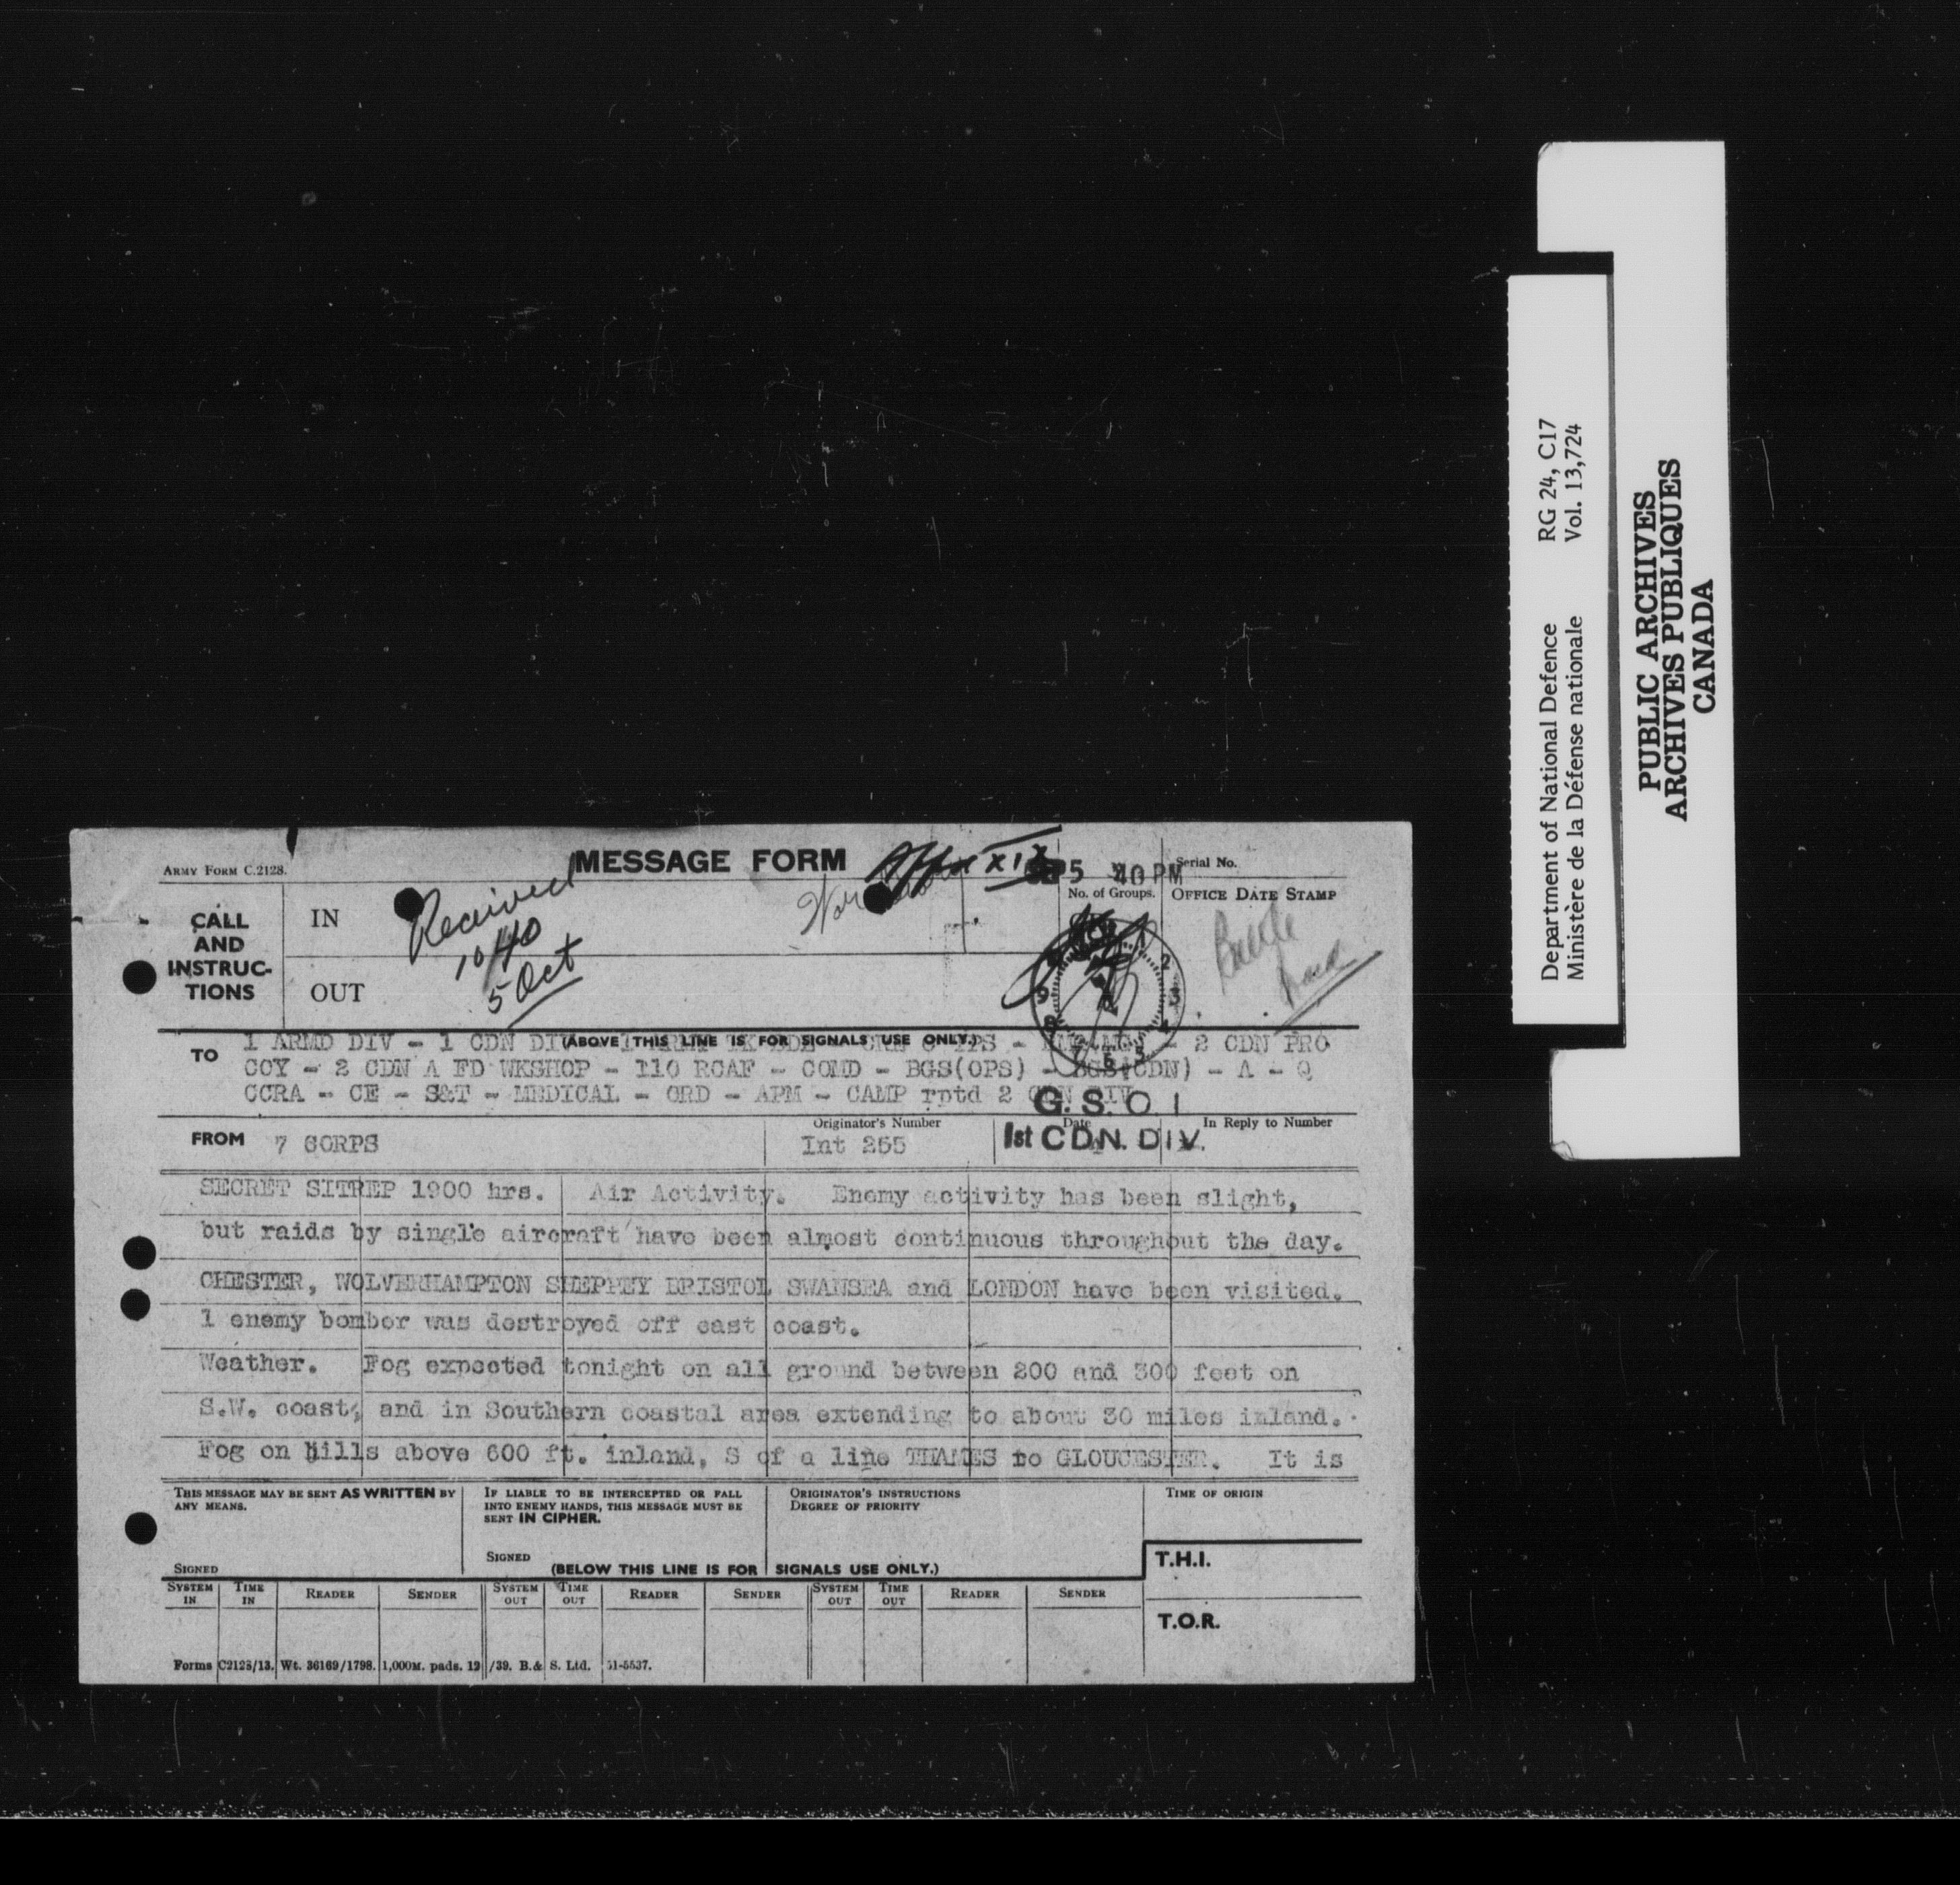 MESSAGE FORM
ARMY FORM C.2128.
App XIX
5 40 PM
Serial No.
No. of Groups.
OFFICE DATE STAMP
CALL AND INSTRUC-TIONS
IN
OUT
Received
10/40
5 Oct
War
9 2 3 4 5 6 7 8
(ABOVE THIS LINE IS FOR SIGNALS USE ONLY.)
TO 1 ARMD DIV - 1 CDN DIV - 2 CDN PRO
COY - 2 CDN A FD WKSHOP - 110 RCAF - COMD - BGS(OPS) - BGS(CDN) - A - Q
CCRA - CE - S&T - MEDICAL - ORD - APM - CAMP rptd 2 CDN DIV
G.S.O. 1
1st CDN. DIV.
FROM 7 CORPS
Originator's Number
Int 255
Date
In Reply to Number
SECRET SITREP 1900 hrs. Air Activity. Enemy activity has been slight,
but raids by single aircraft have been almost continuous throughout the day.
CHESTER, WOLVERHAMPTON SHEPPEY BRISTOL SWANSEA and LONDON have been visited.
1 enemy bomber was destroyed off east coast.
Weather. Fog expected tonight on all ground between 200 and 300 feet on
S.W. coast, and in Southern coastal area extending to about 30 miles inland.
Fog on hills above 600 ft. inland, S of a line THAMES to GLOUCESTER. It is
THIS MESSAGE MAY BE SENT AS WRITTEN BY ANY MEANS.
SIGNED
IF LIABLE TO BE INTERCEPTED OR FALL INTO ENEMY HANDS, THIS MESSAGE MUST BE SENT IN CIPHER.
SIGNED
ORIGINATOR'S INSTRUCTIONS
DEGREE OF PRIORITY
TIME OF ORIGIN
(BELOW THIS LINE IS FOR SIGNALS USE ONLY.)
T.H.I.
T.O.R.
SYSTEM IN TIME IN READER SENDER SYSTEM OUT TIME OUT READER SENDER SYSTEM OUT TIME OUT READER SENDER
Forms C2128/13. Wt. 36169/1798. 1,000M. pads. 12/39. B.& S. Ltd. 51-5537.
Department of National Defence RG 24, C17
Ministère de la Défense nationale Vol. 13,724
PUBLIC ARCHIVES
ARCHIVES PUBLIQUES
CANADA